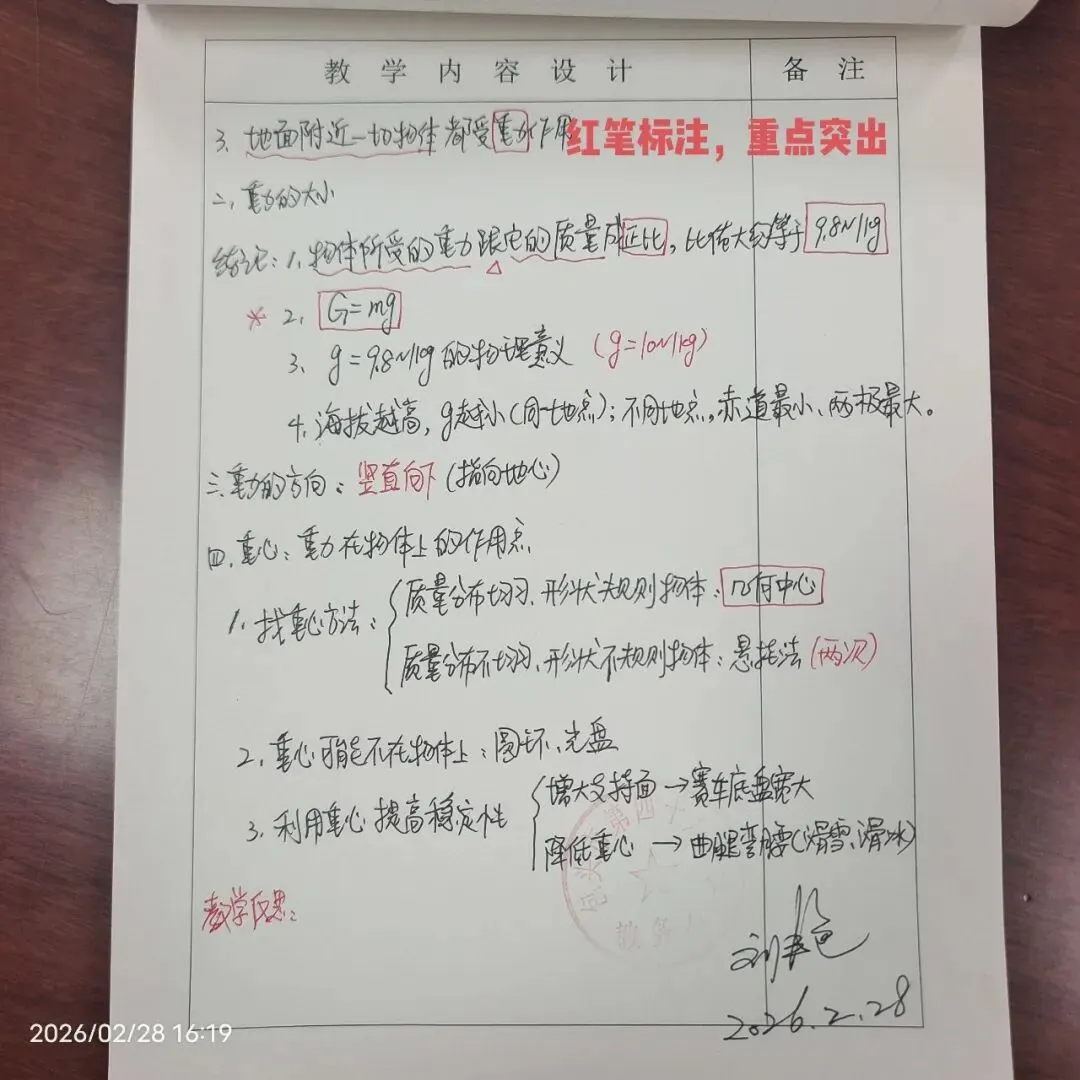 教学内容设计 备注
3、地面附近一切物体都受重力作用 红笔标注，重点突出
二、重力的大小
结论：1、物体所受的重力跟它的质量成正比，比值大约等于9.8N/kg
* 2、G=mg
3、g=9.8N/kg的物理意义（g=10N/kg）
4、海拔越高，g越小（同一地点）；不同地点，赤道最小、两极最大。
三、重力的方向：竖直向下（指向地心）
四、重心：重力在物体上的作用点
1、找重心方法：
质量分布均匀、形状规则物体：几何中心
质量分布不均匀、形状不规则物体：悬挂法（两次）
2、重心可能不在物体上：圆环、光盘
3、利用重心提高稳定性
增大支持面→赛车底盘宽大
降低重心→曲腿弯腰（滑雪、滑冰）
教学反思：
包头 第四
教务
2026.2.28
2026/02/28 16:19